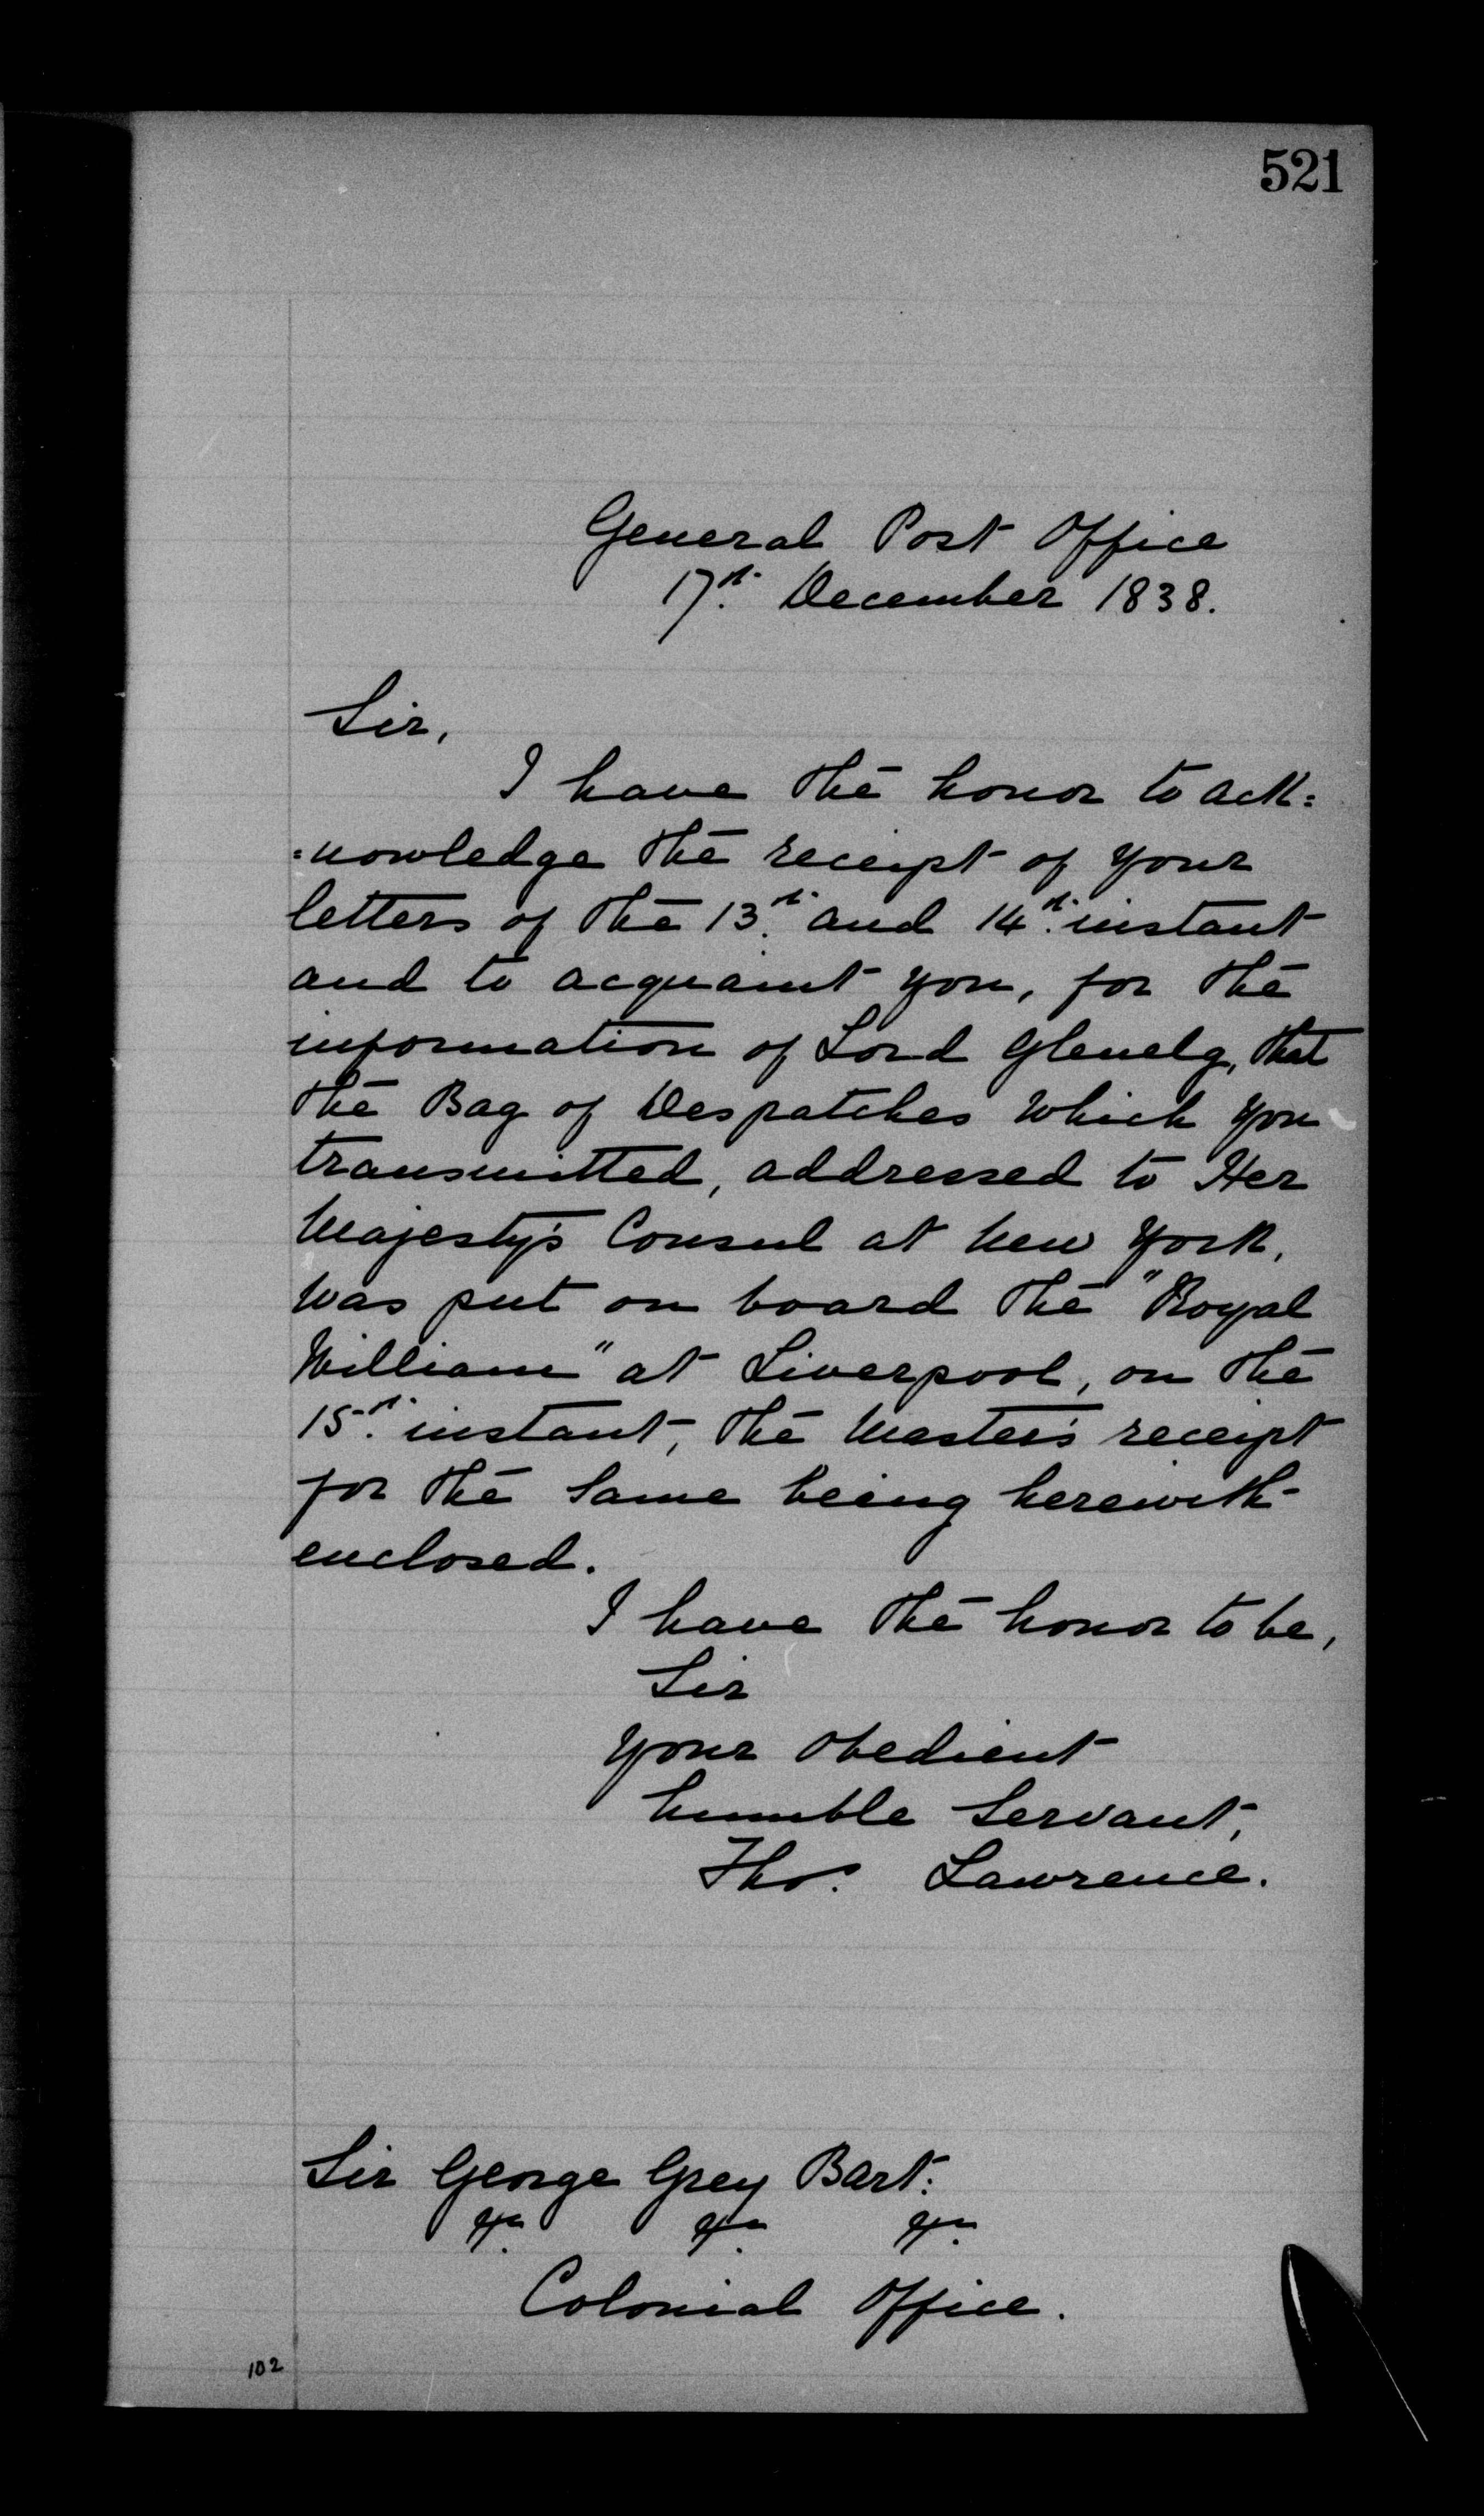 521
General Post Office
17th. December 1838.
Sir,
I have the honor to ack=
=nowledge the receipt of your
letters of the 13th. and 14th. instant
and to acquaint you, for the
information of Lord Glenelg, that
the Bag of Despatches which you
transmitted, addressed to Her
Majesty's Consul at New York,
was put on board the "Royal
William" at Liverpool, on the
15th. instant, the Master's receipt
for the same being herewith
enclosed.
I have the honor to be,
Sir
Your obedient
humble servant,
Thos. Lawrence.
Sir George Grey Bart.
&c. &c. &c.
Colonial Office.
102